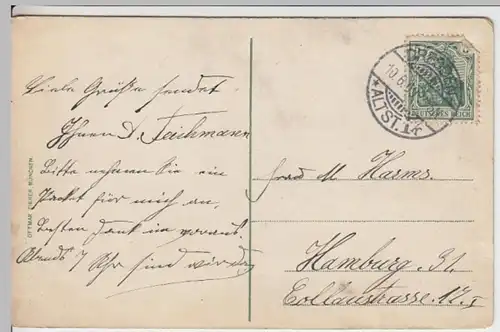 Viele Grüße sendet
Ihnen A. Teichmann
Bitte nehmen Sie ein
Packet für mich an,
besten Dank im voraus.
Abends 7 Uhr sind wir da
M. Harms.
Hamburg. 31.
Eollaustrasse 12. I
OTTMAR ZIEHER, MÜNCHEN.
ALTST. 14
DEUTSCHES REICH